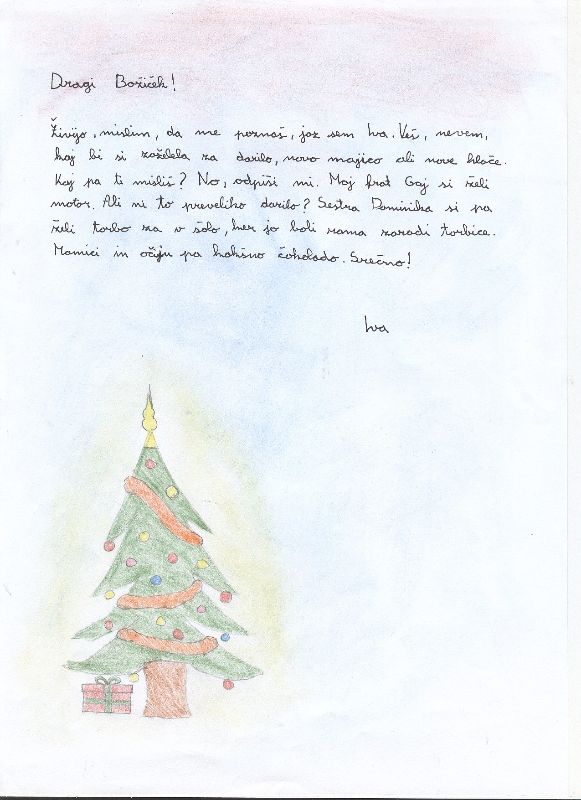 Dragi Božiček!
Živijo, mislim, da me poznaš, jaz sem Iva. Veš, nevem,
kaj bi si zaželela za darilo, novo majico ali nove hlače.
Kaj pa ti misliš? No, odpiši mi. Moj brat Gaj si želi
motor. Ali ni to preveliko darilo? Sestra Dominika si pa
želi torbo za v šolo, ker jo boli rama zaradi torbice.
Mamici in očiju pa kakšno čokolado. Srečno!
Iva